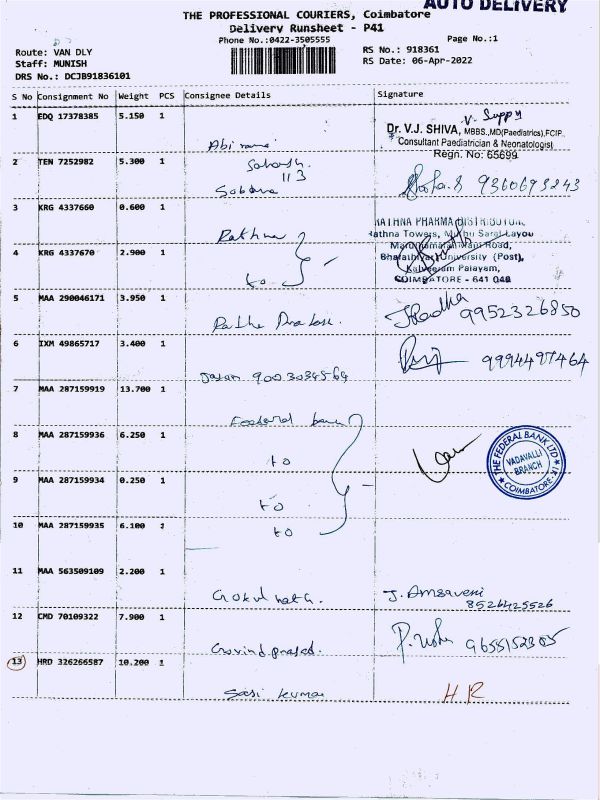 AUTO DELIVERY
THE PROFESSIONAL COURIERS, Coimbatore
Delivery Runsheet - P41
Phone No.:0422-3505555
Page No.:1
Route: VAN DLY
Staff: MUNISH
DRS No.: DCJB91836101
RS No.: 918361
RS Date: 06-Apr-2022
S No Consignment No Weight PCS Consignee Details Signature
1 EDQ 17378385 5.150 1
V. Suppy
Dr. V.J. SHIVA, MBBS.,MD(Paediatrics),FCIP.
Consultant Paediatrician & Neonatologist
Regn. No: 65699
Abi
2 TEN 7252982 5.300 1
113
9360693243
3 KRG 4337660 0.600 1
Rathna
RATHNA PHARMA DISTRIBUTOR,
Rathna Towers, Muthu Saral Layou
Maruthamalai Main Road,
Bharathiyar University (Post),
Kalveeram Palayam,
COIMBATORE - 641 046
4 KRG 4337670 2.900 1
to
5 MAA 290046171 3.950 1
Radha
9952326850
6 IXM 49865717 3.400 1
9003034564
9994497464
7 MAA 287159919 13.700 1
Federal bank
8 MAA 287159936 6.250 1
to
THE FEDERAL BANK LTD
VADAVALLI
BRANCH
COIMBATORE
9 MAA 287159934 0.250 1
to
10 MAA 287159935 6.100 1
to
11 MAA 563509109 2.200 1
Gokulnath.
J. Amsaveni
8526425526
12 CMD 70109322 7.900 1
Govindprasad.
P. Usha 9655152305
13 HRD 326266587 10.200 1
Sasi kumar
H R